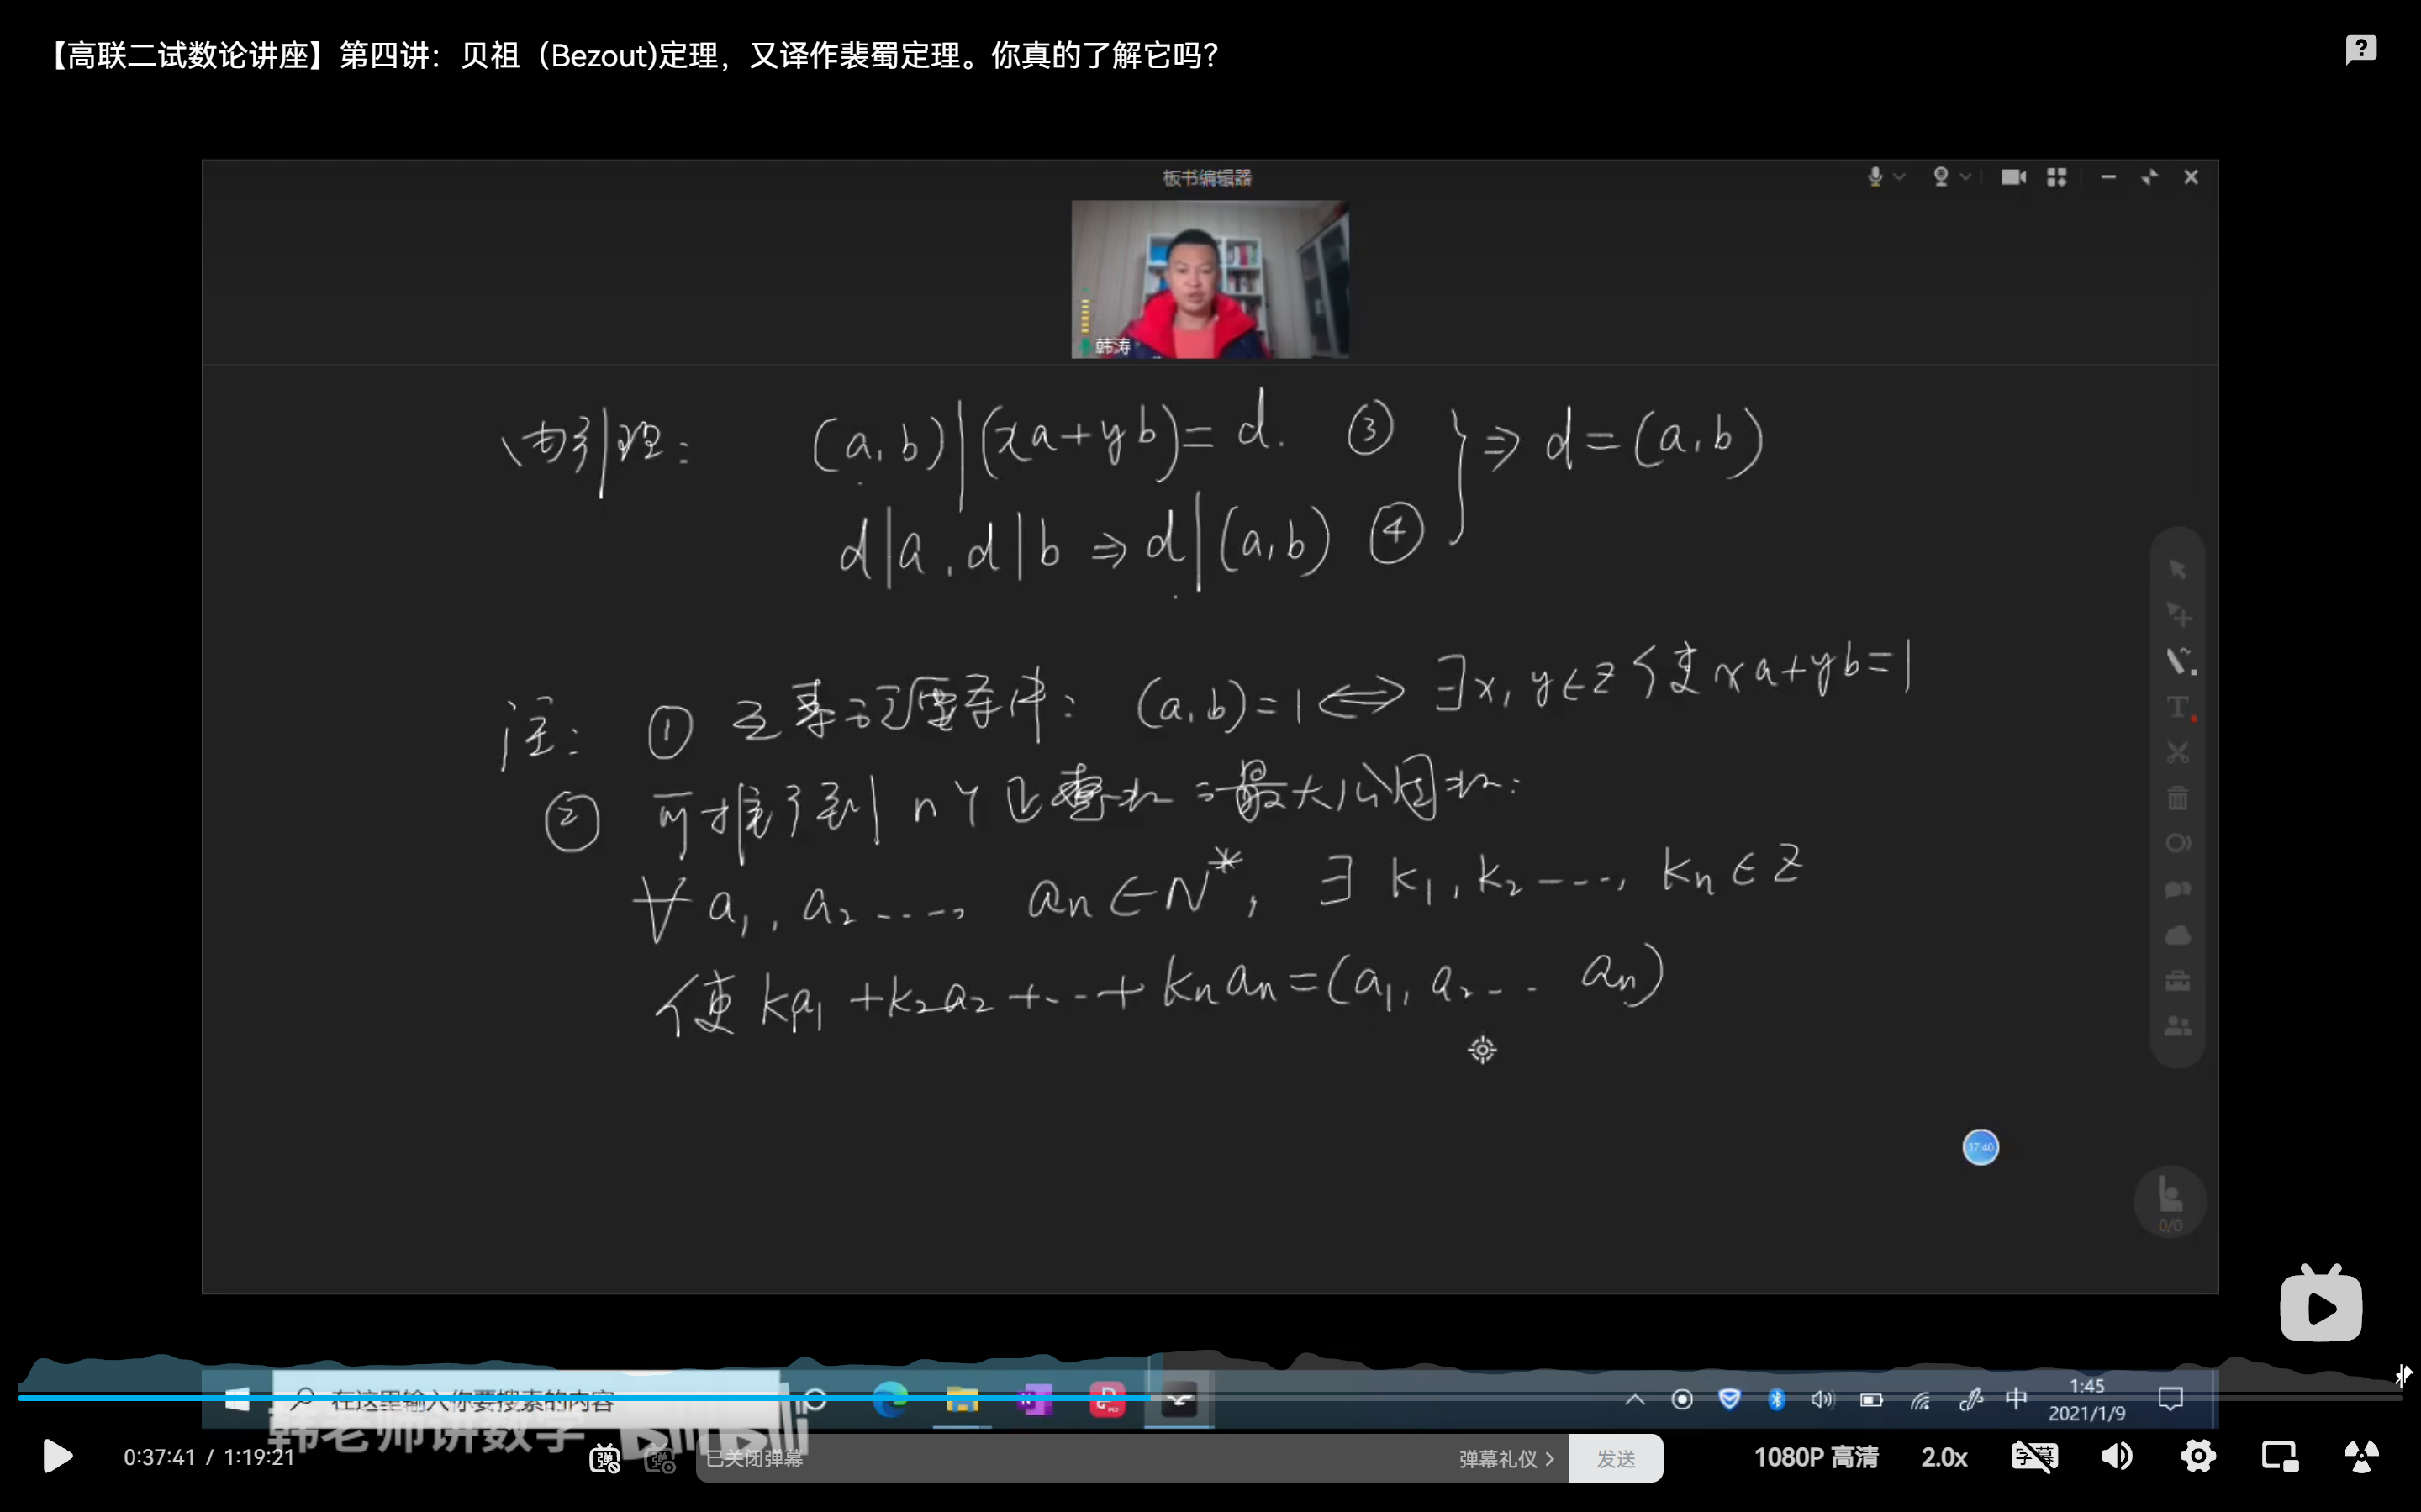 【高联二试数论讲座】第四讲：贝祖（Bezout)定理，又译作裴蜀定理。你真的了解它吗？
板书编辑器
韩涛
由引理： (a,b)|(xa+yb)=d. ③
d|a,d|b ⇒ d|(a,b) ④ } ⇒ d=(a,b)
注： ① 互素的充要条件： (a,b)=1 ⟺ ∃x,y∈Z 使 xa+yb=1
② 可推广到 n个正整数的最大公因数：
∀ a₁, a₂ ...., aₙ ∈ N*, ∃ k₁, k₂ ---., kₙ ∈ Z
使 k₁a₁ +k₂a₂ +...+ kₙaₙ=(a₁, a₂... aₙ)
37:40
0/0
在这里输入你要搜索的内容
中
1:45
2021/1/9
韩老师讲数学 bilibili
0:37:41 / 1:19:21
弹
弹
已关闭弹幕
弹幕礼仪 >
发送
1080P 高清
2.0x
字幕